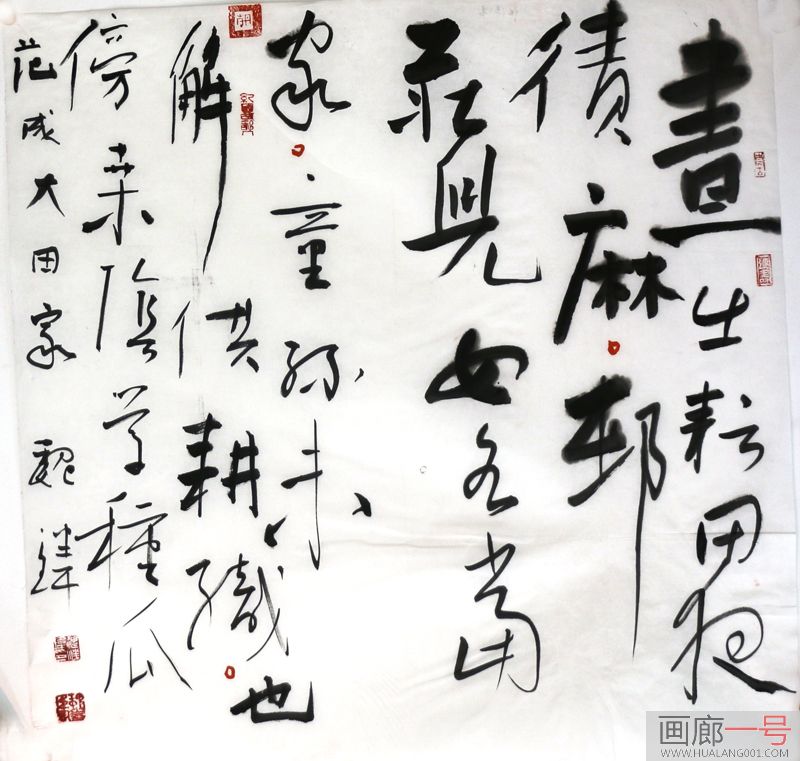 晝出耘田夜
績麻邨
莊兒女各當
家童孫未
解供耕織也
傍桒陰学種瓜
范成大田家 魏
画廊一号
WWW.HUALANG001.COM